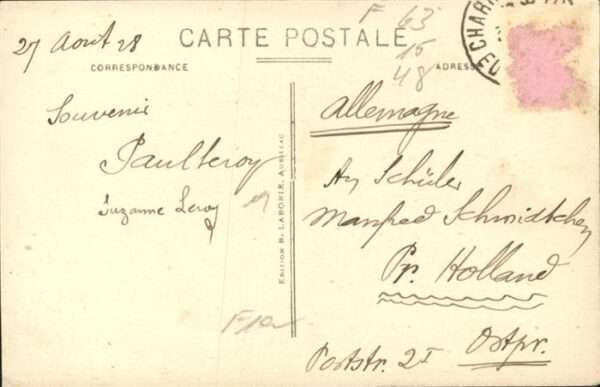 27 Août 28
CARTE POSTALE
F 63
15
48
CORRESPONDANCE
ADRESSE
Souvenir
Paul Leroy
Suzanne Leroy
EDITION B. LABORIE, AURILLAC
Allemagne
An Schüler
Manfred Schmidtchen
Pr. Holland
Ostpr.
Poststr. 2I